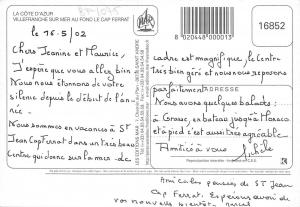 LA CÔTE D'AZUR
VILLEFRANCHE SUR MER AU FOND LE CAP FERRAT
16852
8 020448 000013
le 16-5/02
Chers Jeanine et Maurice,
J'espère que vous allez bien
Nous nous étonnons de votre
silence depuis le début de l'an
née.
Nous sommes en vacances à St
Jean Cap Ferrat dans un très beau
Centre qui donne sur la mer. Le
cadre est magnifique, le Centre
très bien géré et nous nous reposons
parfaitement.
Nous avons quelques balades :
à Grasse, en bateau jusqu'à Monaco
et à pied c'est aussi très agréable.
Amitiés à vous
Amicales pensées de St Jean
Cap Ferrat. Espérons avoir de
vos nouvelles bientôt.